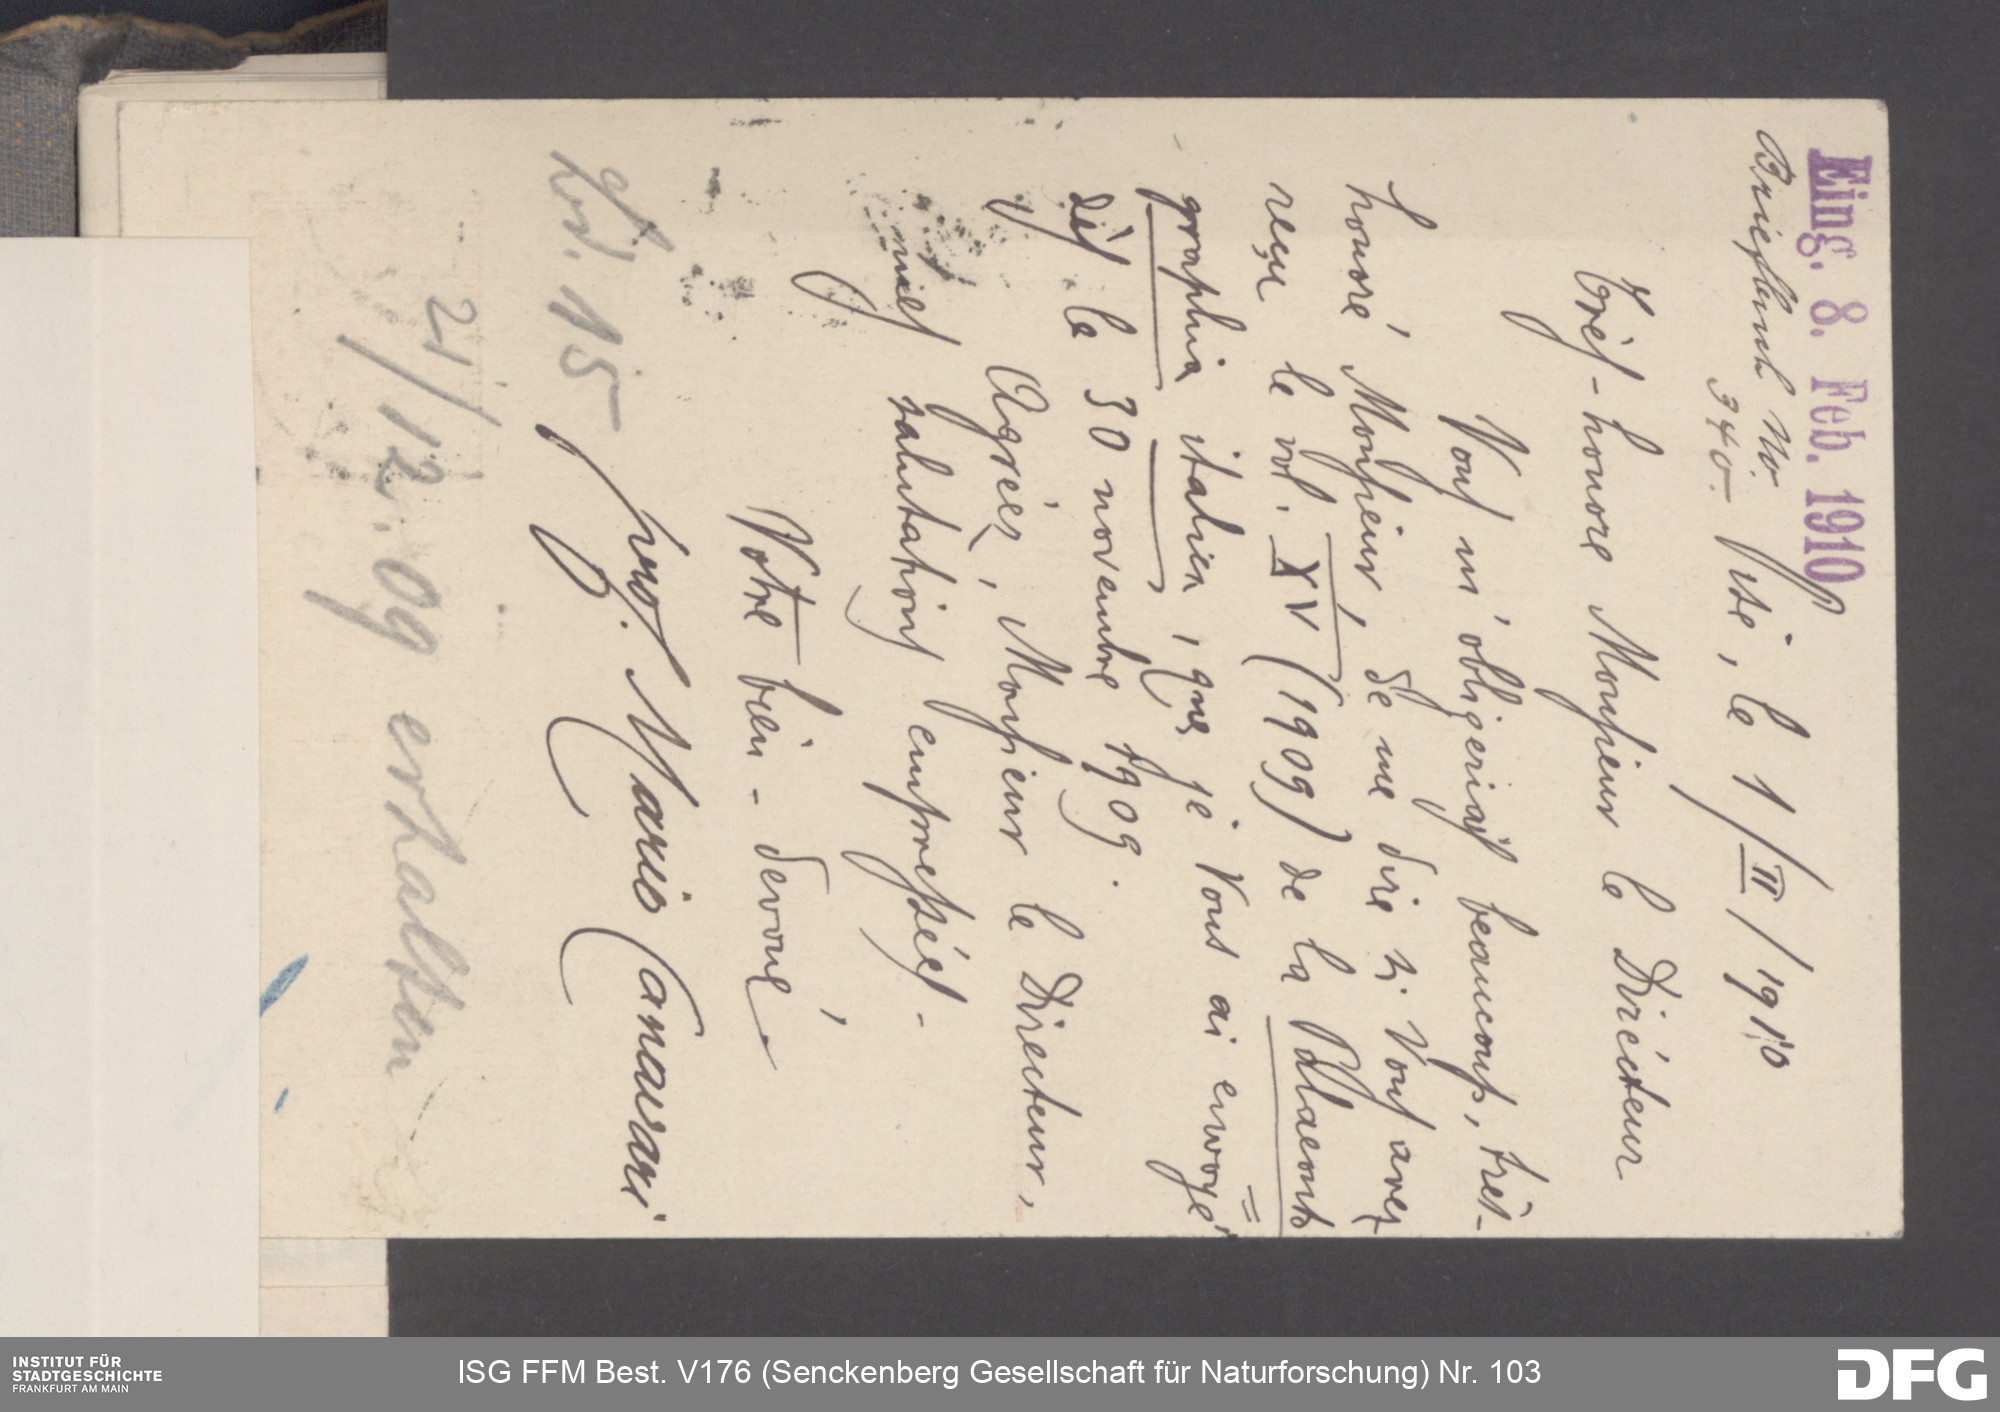 Eing. 8. Feb. 1910
Briefbuch No.
340.
Pise, le 1/II/1910
Très-honoré Monsieur le Directeur
Vous m'obligeriais beaucoup, très-
honoré Monsieur, de me dire si Vous avez
reçu le vol. XV (1909) de la Palaeonto=
graphia italica, que je Vous ai envoyé
dès le 30 novembre 1909.
Agréez, Monsieur le Directeur,
mes salutations empressées.
Votre bien-devoué
prof. Mario Canavari
Bd. 15
21/12.09 erhalten
INSTITUT FÜR
STADTGESCHICHTE
FRANKFURT AM MAIN
ISG FFM Best. V176 (Senckenberg Gesellschaft für Naturforschung) Nr. 103
DFG